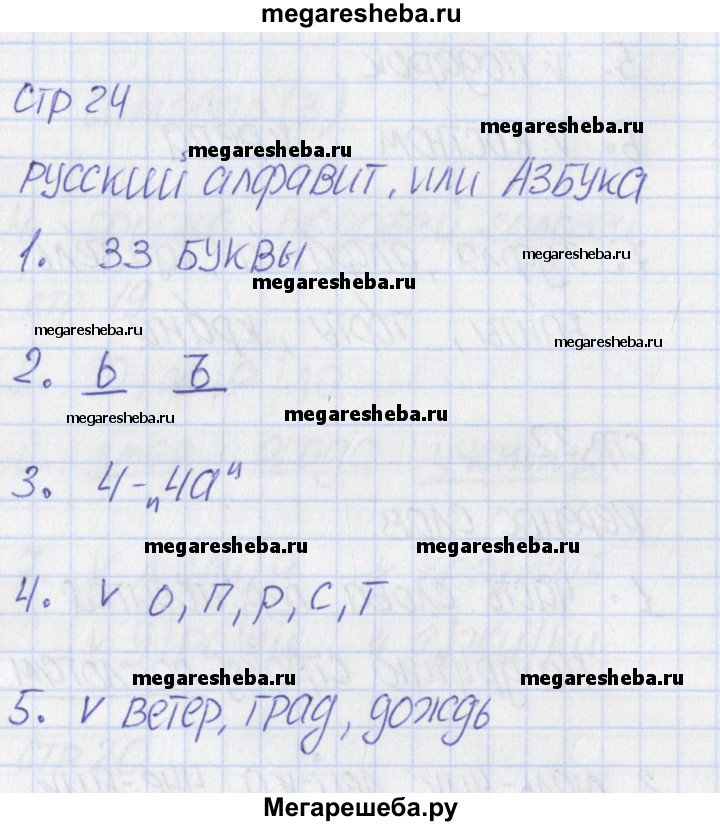 megaresheba.ru
стр 24
megaresheba.ru
megaresheba.ru
русский алфавит, или АЗБУКА
1. 33 БУКВЫ
megaresheba.ru
megaresheba.ru
megaresheba.ru
megaresheba.ru
2. ь ъ
megaresheba.ru
megaresheba.ru
3. Ч - „Ча“
megaresheba.ru
megaresheba.ru
4. v О, П, Р, С, Т
megaresheba.ru
megaresheba.ru
5. v ветер, град, дождь
Мегарешеба.ру